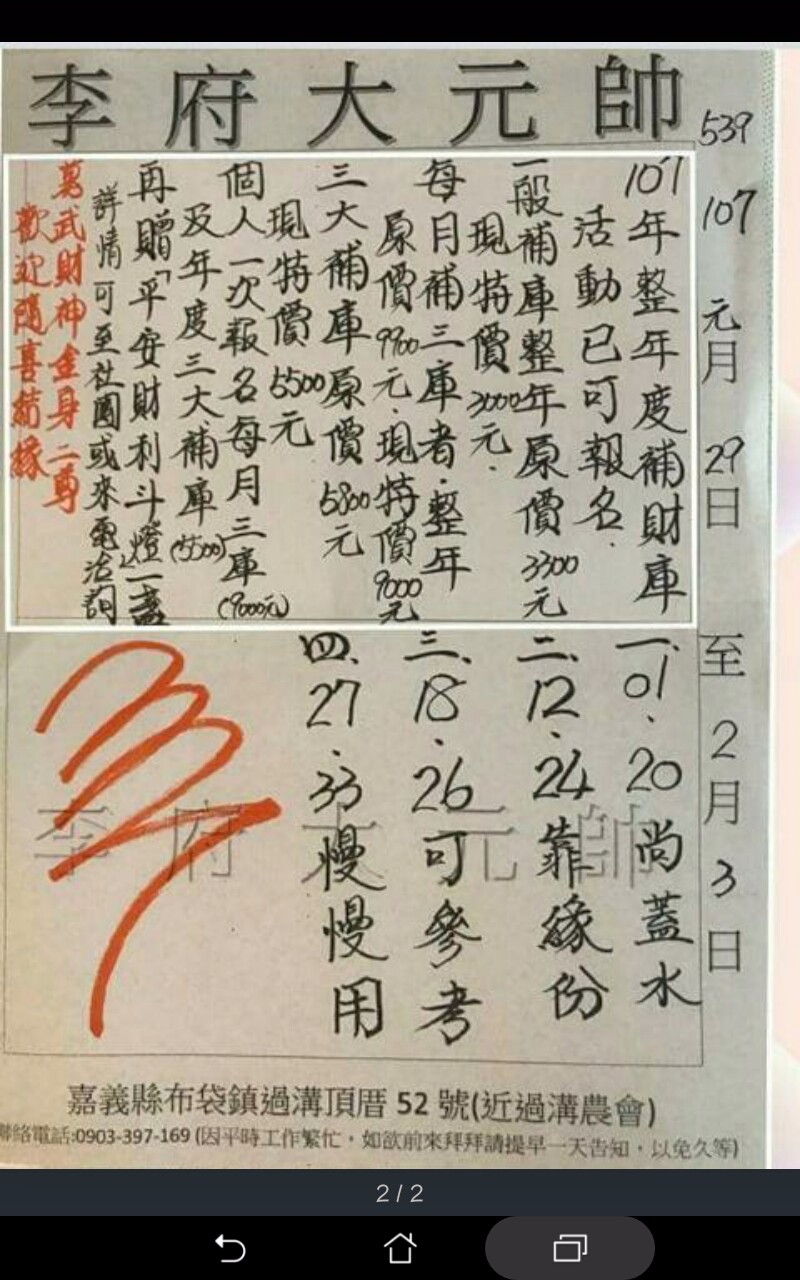 李府大元帥
539
107 元月 29日 至 2月 3日
107年整年度補財庫
活動已可報名.
一般補庫整年原價3300元
現特價3000元.
每月補三庫者.整年
原價9900元.現特價9000元
三大補庫原價5800元
現特價5500元
個人一次報名每月三庫(9000元)
及年度三大補庫(5500)
再贈「平安財利斗燈」一盞
詳情可至社團或來電洽詢
武財神金身二尊
歡迎隨喜結緣
一.01.20尚蓋水
二.12.24靠緣份
三.18.26可參考
四.27.33慢慢用
李府大元帥
嘉義縣布袋鎮過溝頂厝 52 號(近過溝農會)
聯絡電話:0903-397-169 (因平時工作繁忙，如欲前來拜拜請提早一天告知，以免久等)
2 / 2